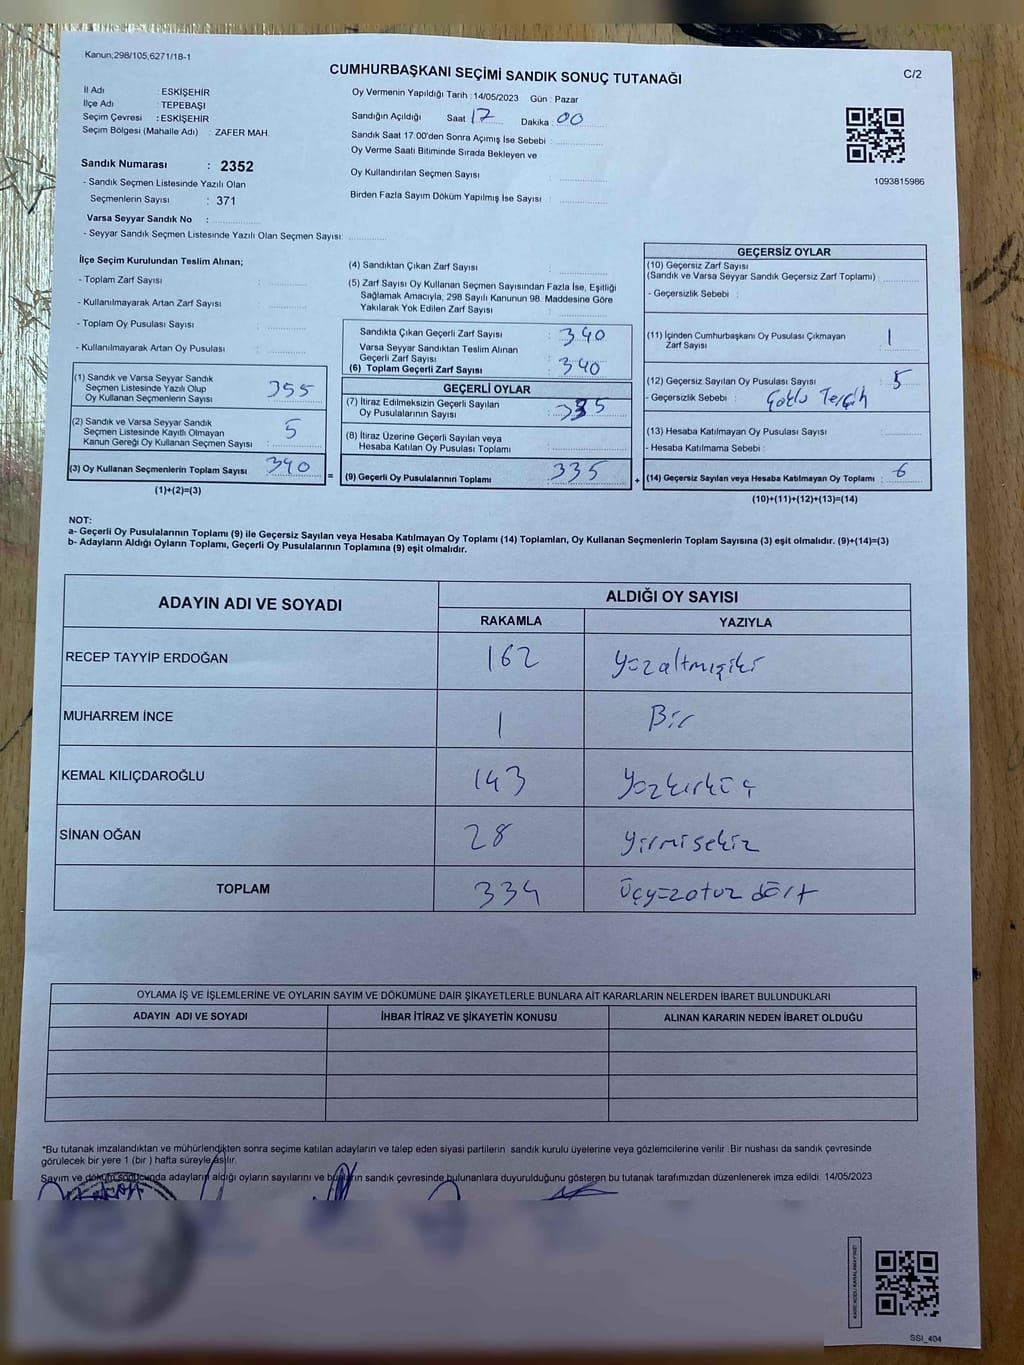 Kanun,298/105,6271/18-1
CUMHURBAŞKANI SEÇİMİ SANDIK SONUÇ TUTANAĞI
C/2
İl Adı : ESKİŞEHİR
İlçe Adı : TEPEBAŞI
Seçim Çevresi : ESKİŞEHİR
Seçim Bölgesi (Mahalle Adı) : ZAFER MAH.
Oy Vermenin Yapıldığı Tarih : 14/05/2023 Gün : Pazar
Sandığın Açıldığı Saat 17 Dakika : 00
Sandık Saat 17:00'den Sonra Açımış İse Sebebi :
Oy Verme Saati Bitiminde Sırada Bekleyen ve
Oy Kullandırılan Seçmen Sayısı :
Birden Fazla Sayım Döküm Yapılmış İse Sayısı :
1093815986
Sandık Numarası : 2352
- Sandık Seçmen Listesinde Yazılı Olan
Seçmenlerin Sayısı : 371
Varsa Seyyar Sandık No :
- Seyyar Sandık Seçmen Listesinde Yazılı Olan Seçmen Sayısı:
İlçe Seçim Kurulundan Teslim Alınan;
- Toplam Zarf Sayısı :
- Kullanılmayarak Artan Zarf Sayısı :
- Toplam Oy Pusulası Sayısı :
- Kullanılmayarak Artan Oy Pusulası :
(1) Sandık ve Varsa Seyyar Sandık
Seçmen Listesinde Yazılı Olup
Oy Kullanan Seçmenlerin Sayısı : 355
(2) Sandık ve Varsa Seyyar Sandık
Seçmen Listesinde Kayıtlı Olmayan
Kanun Gereği Oy Kullanan Seçmen Sayısı : 5
(3) Oy Kullanan Seçmenlerin Toplam Sayısı : 340
(1)+(2)=(3)
(4) Sandıktan Çıkan Zarf Sayısı :
(5) Zarf Sayısı Oy Kullanan Seçmen Sayısından Fazla İse, Eşitliği
Sağlamak Amacıyla; 298 Sayılı Kanunun 98. Maddesine Göre
Yakılarak Yok Edilen Zarf Sayısı :
Sandıkta Çıkan Geçerli Zarf Sayısı : 340
Varsa Seyyar Sandıktan Teslim Alınan
Geçerli Zarf Sayısı :
(6) Toplam Geçerli Zarf Sayısı : 340
GEÇERLİ OYLAR
(7) İtiraz Edilmeksizin Geçerli Sayılan
Oy Pusulalarının Sayısı : 335
(8) İtiraz Üzerine Geçerli Sayılan veya
Hesaba Katılan Oy Pusulaları Toplamı :
= (9) Geçerli Oy Pusulalarının Toplamı : 335
GEÇERSİZ OYLAR
(10) Geçersiz Zarf Sayısı
(Sandık ve Varsa Seyyar Sandık Geçersiz Zarf Toplamı) :
- Geçersizlik Sebebi :
(11) İçinden Cumhurbaşkanı Oy Pusulası Çıkmayan
Zarf Sayısı : 1
(12) Geçersiz Sayılan Oy Pusulası Sayısı : 5
- Geçersizlik Sebebi : Çoklu Tercih
(13) Hesaba Katılmayan Oy Pusulası Sayısı :
- Hesaba Katılmama Sebebi :
+ (14) Geçersiz Sayılan veya Hesaba Katılmayan Oy Toplamı : 6
(10)+(11)+(12)+(13)=(14)
NOT:
a- Geçerli Oy Pusulalarının Toplamı (9) ile Geçersiz Sayılan veya Hesaba Katılmayan Oy Toplamı (14) Toplamları, Oy Kullanan Seçmenlerin Toplam Sayısına (3) eşit olmalıdır. (9)+(14)=(3)
b- Adayların Aldığı Oyların Toplamı, Geçerli Oy Pusulalarının Toplamına (9) eşit olmalıdır.
ADAYIN ADI VE SOYADI
ALDIĞI OY SAYISI
RAKAMLA YAZIYLA
RECEP TAYYİP ERDOĞAN 162 yüzaltmışiki
MUHARREM İNCE 1 Bir
KEMAL KILIÇDAROĞLU 143 Yüzkırküç
SİNAN OĞAN 28 yirmisekiz
TOPLAM 334 üçyüzotuz dört
OYLAMA İŞ VE İŞLEMLERİNE VE OYLARIN SAYIM VE DÖKÜMÜNE DAİR ŞİKAYETLERLE BUNLARA AİT KARARLARIN NELERDEN İBARET BULUNDUKLARI
ADAYIN ADI VE SOYADI İHBAR İTİRAZ VE ŞİKAYETİN KONUSU ALINAN KARARIN NEDEN İBARET OLDUĞU
*Bu tutanak imzalandıktan ve mühürlendikten sonra seçime katılan adayların ve talep eden siyasi partilerin sandık kurulu üyelerine veya gözlemcilerine verilir. Bir nüshası da sandık çevresinde
görülecek bir yere 1 (bir) hafta süreyle asılır.
Sayım ve döküm sonucunda adayların aldığı oyların sayılarını ve bunların sandık çevresinde bulunanlara duyurulduğunu gösteren bu tutanak tarafımızdan düzenlenerek imza edildi. 14/05/2023
SSİ_404